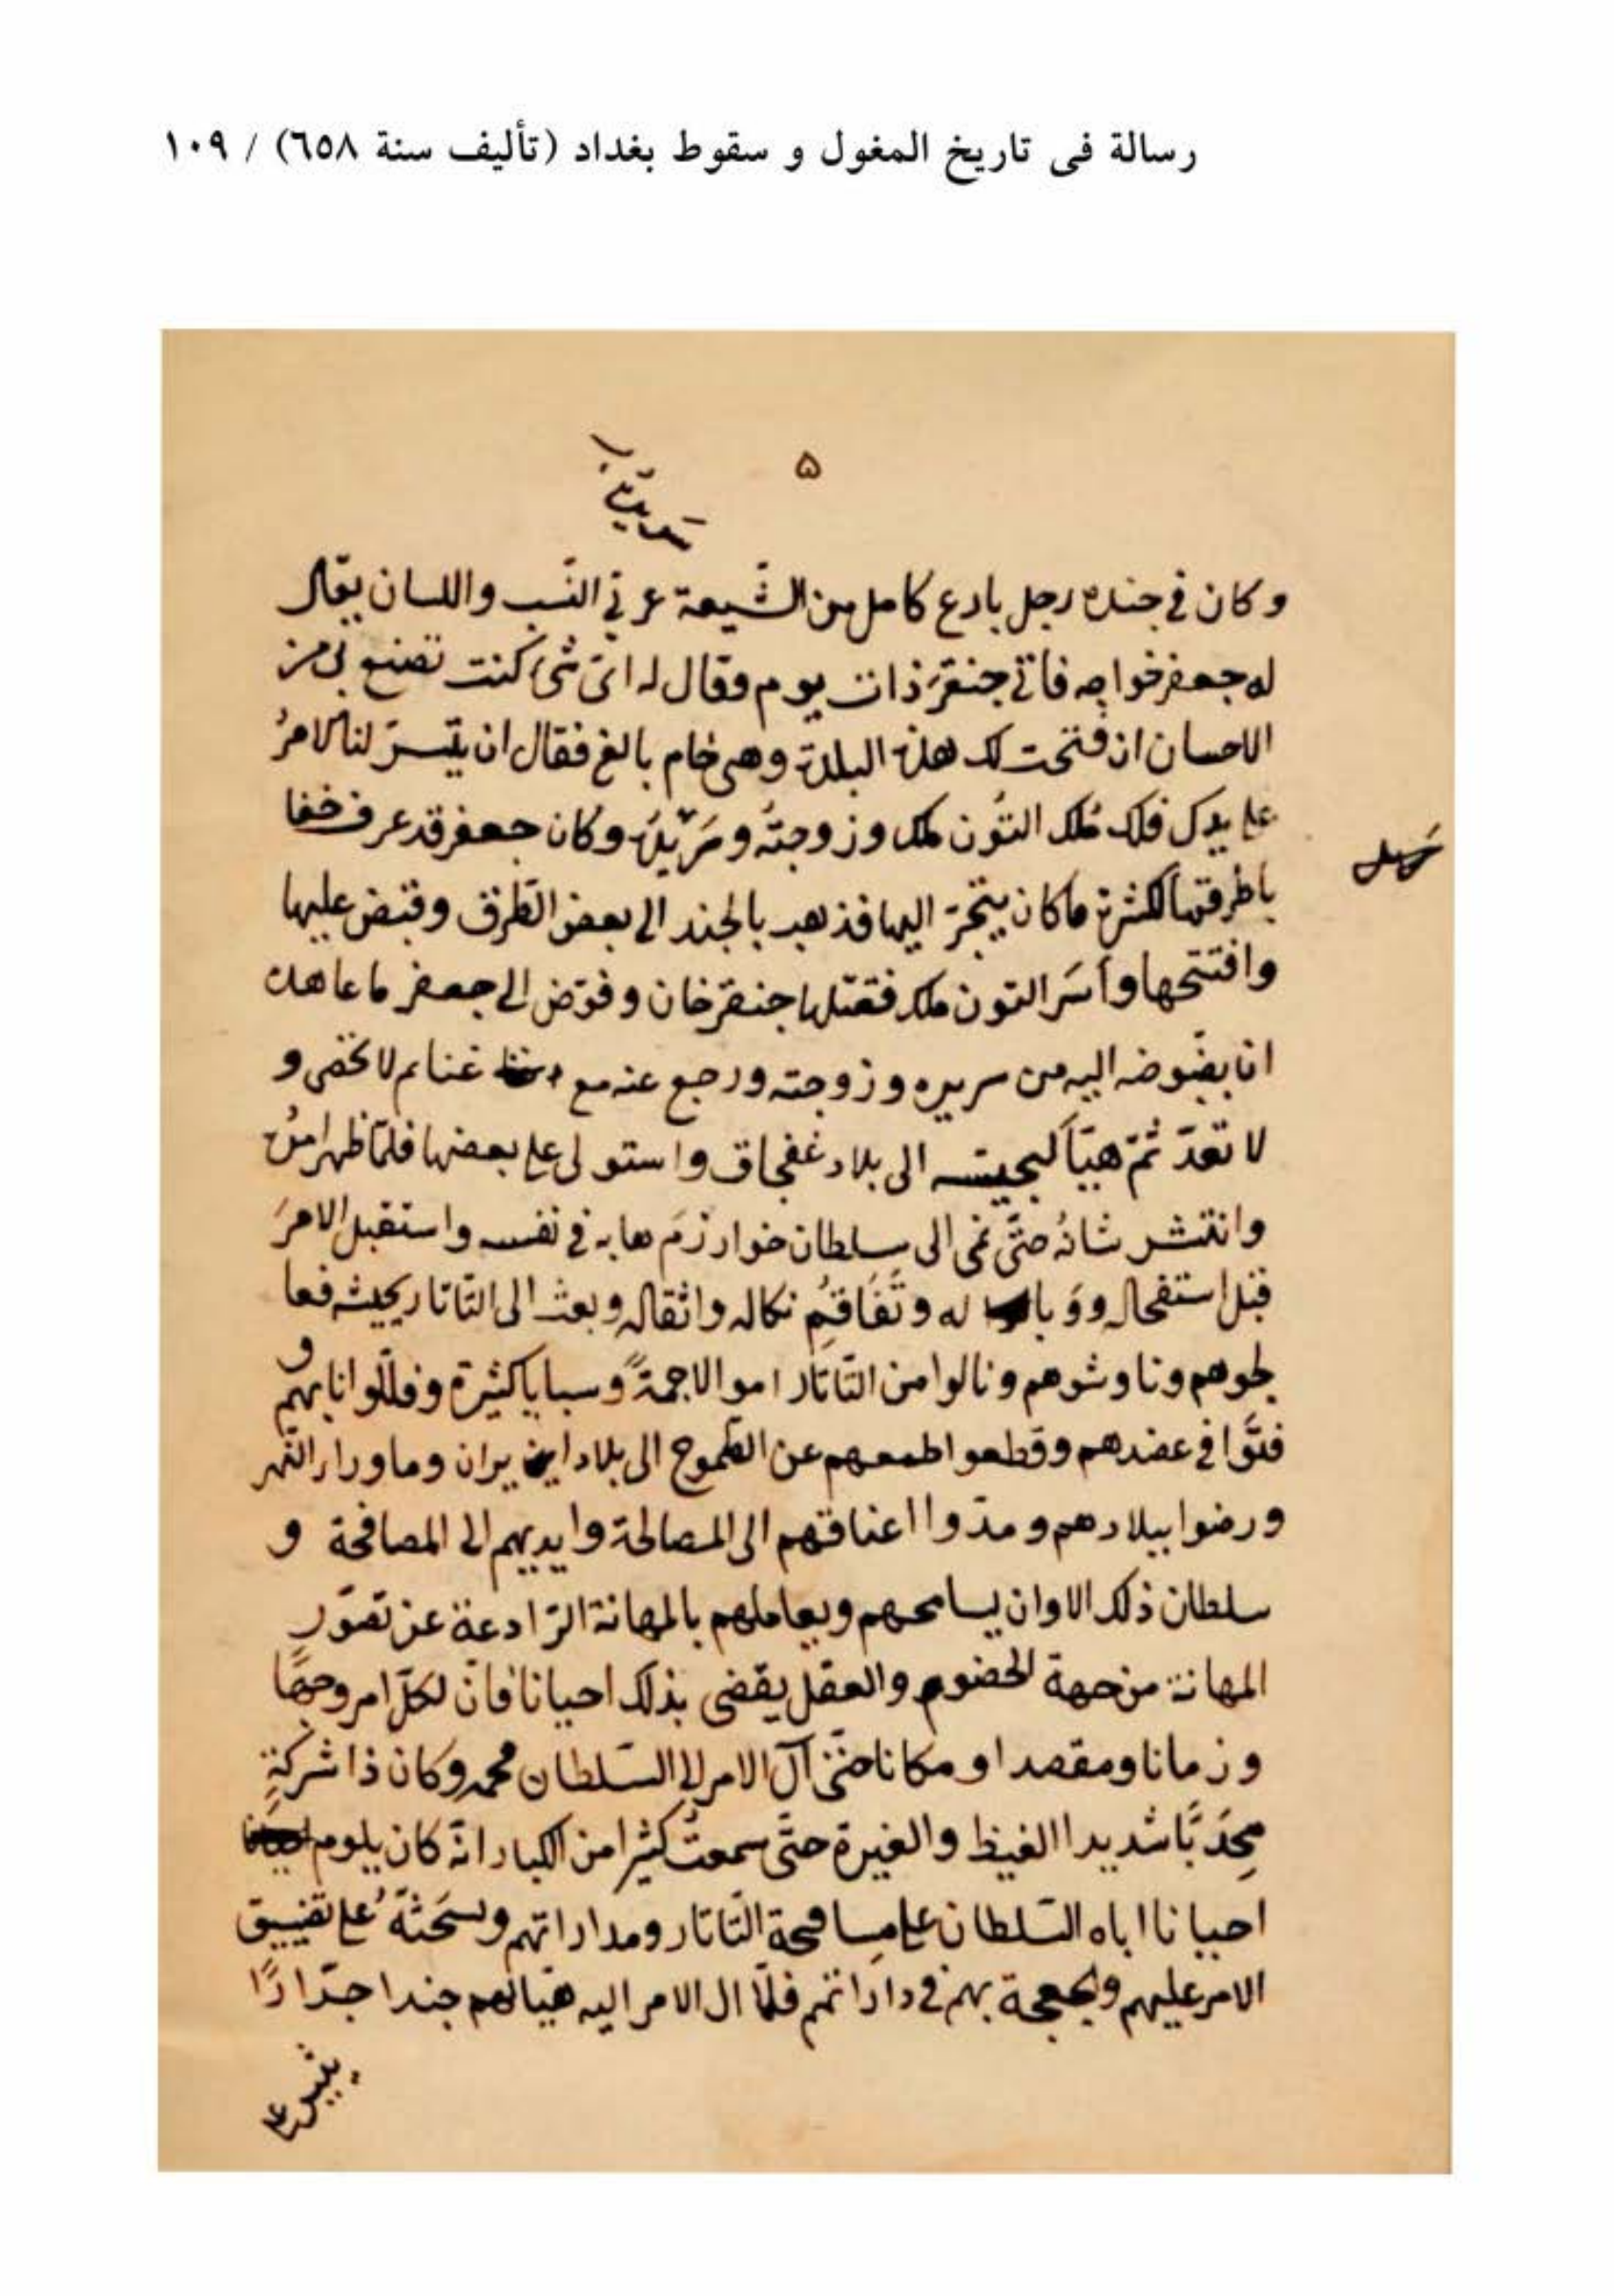 رسالة فى تاريخ المغول و سقوط بغداد (تأليف سنة ٦٥٨) / ١٠٩
۵
وكان فى جنده رجل بارع كامل من الشّيعة عربى النّسب واللسان يقال
له جعفر خواجه فاتى جنقز ذات يوم وقال له اىّ شئ كنت تصنع بى من
الاحسان ان فتحت لك هذه البلدة وهى خام بالغ فقال ان يتيسرّ لنا الامرُ
على يدك فلك مُلك التُون ملك وزوجتُه و وكان جعفر قد عرف
باطرقتها لكثرة ما كان يتّجرّ اليها فذهب بالجند الى بعض الطّرق وقبض عليها
وافتتحها وأسَر التون ملك فقتلها جنقز خان وفوّض الى جعفر ما عاهده
انا يفوضه اليه من سريره وزوجته ورجع عنه مع غنايم لا تحصى و
لا تعدّ ثمّ هيّأ لجيشه الى بلاد غفجاق واستولى على بعضها فلمّا ظهر امرُه
وانتشر شانُه حتّى نمى الى سلطان خوارزمَ هابه فى نفسه واستقبل الامرَ
قبل استفحاله ووَبا له وتَفَاقُمِ نكاله واثقاله وبعث الى التّاتار بجيشه فعا
لجوهم وناوشوهم ونالوا من التّاتار اموالا جمةً وسبايا كثيرة وفلّلوا انابهم و
فتّوا فى عضدهم وقطعوا طمعهم عن الطّموح الى بلاد ايران وماوراء النّهر
ورضوا ببلادهم ومدّوا اعناقهم الى المصالحة وايديهم الى المصافحة و
سلطان ذلك الاوان يسامحهم ويعاملهم بالمهانة الرّادعة عن تصوّر
المهانة من جهة الخضوم والعقل يقضى بذلك احيانا فانّ لكلّ امر وجهًا
وزمانا ومقصدا ومكانا حتّى آل الامر الى السّلطان محمد وكان ذا شركةٍ
مجِدًّا شديدا الغيظ والغيرة حتّى سمعتُ كثيرا من الكبار انّه كان يلوم
احيانا اباه السّلطان على مسامحة التّاتار ومداراتهم ويستحثّهُ على تضييق
الامر عليهم بهم فى داراتهم فلمّا ال الامر اليه هيّا لهم جندا جرّارًا